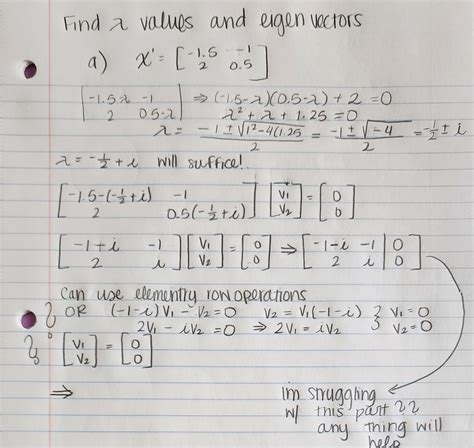 Find λ values and eigen vectors
a) x' = [-1.5 -1
2 0.5]
|-1.5λ -1
2 0.5-λ| ⇒ (-1.5-λ)(0.5-λ) + 2 = 0
λ² + λ + 1.25 = 0
λ = -1 ± √1²-4(1.25 / 2 = -1 ± √-4 / 2 = -½ ± i
λ = -½ + i will suffice!
[-1.5-(-½+i) -1
2 0.5(-½+i)] [V₁
V₂] = [0
0]
[-1+i -1
2 i] [V₁
V₂] = [0
0] ⇒ [-1-i -1 | 0
2 i | 0]
Can use elementry row operations
OR (-1-i)V₁ - V₂ = 0 V₂ = V₁(-1-i) } V₁ = 0
2V₁ - iV₂ = 0 ⇒ 2V₁ = iV₂ V₂ = 0
[V₁
V₂] = [0
0]
⇒
im struggling
w/ this part ??
any thing will
help